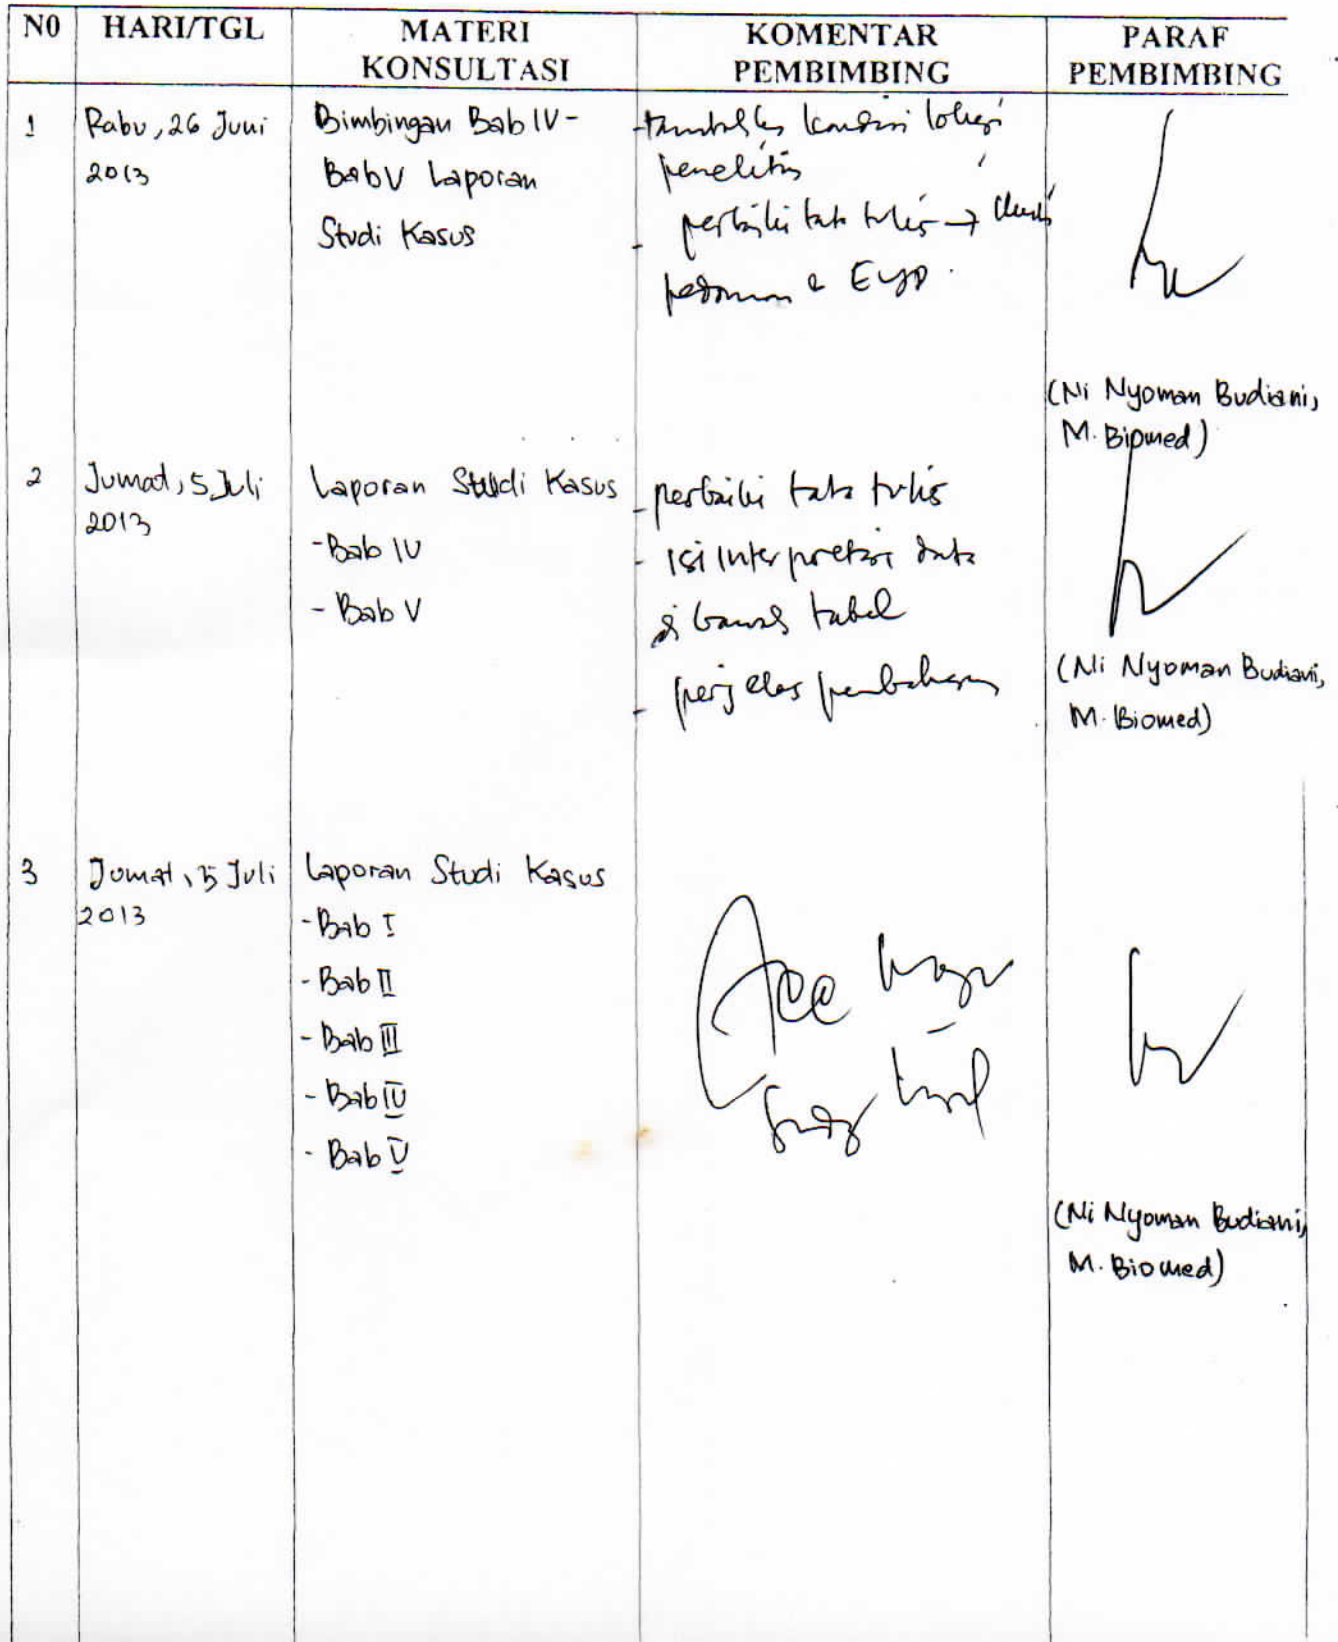 N0 HARI/TGL MATERI KONSULTASI KOMENTAR PEMBIMBING PARAF PEMBIMBING
1 Rabu, 26 Juni 2013
Bimbingan Bab IV -
Bab V Laporan
Studi Kasus
- tambahkan kondisi lokasi
penelitian
- perbaiki tata tulis →
pedoman & EYD.
(Ni Nyoman Budiani,
M. Biomed)
2 Jumat, 5 Juli
2013
Laporan Studi Kasus
- Bab IV
- Bab V
- perbaiki tata tulis
- isi interpretasi data
di bawah tabel
- perjelas pembahasan
(Ni Nyoman Budiani,
M. Biomed)
3 Jumat, 5 Juli
2013
Laporan Studi Kasus
- Bab I
- Bab II
- Bab III
- Bab IV
- Bab V
Acc
(Ni Nyoman Budiani,
M. Biomed)